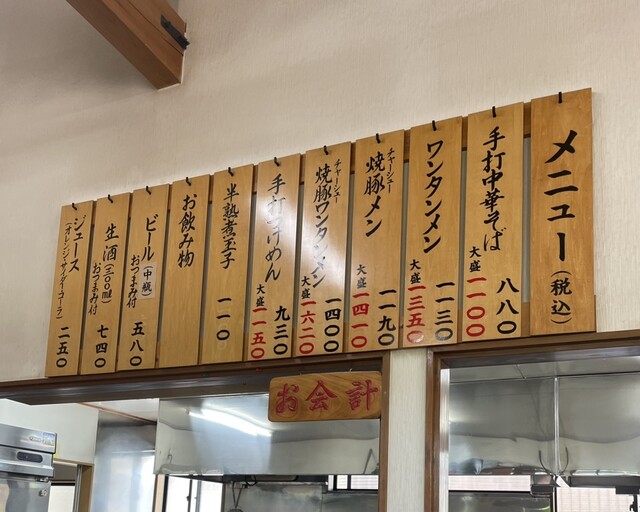 メニュー(税込)
手打中華そば 八八〇
大盛 一一〇〇
ワンタンメン 一一三〇
大盛 一三五〇
チャーシュー
焼豚メン 一一九〇
大盛 一四一〇
チャーシュー
焼豚ワンタンメン 一四〇〇
大盛 一六二〇
手打つけめん 九三〇
大盛 一一五〇
半熟煮玉子 一一〇
お飲み物
ビール(中瓶) 五八〇
おつまみ付
生酒(三〇〇ml) 七四〇
おつまみ付
ジュース 二五〇
(オレンジ・サイダー・コーラ)
お会計